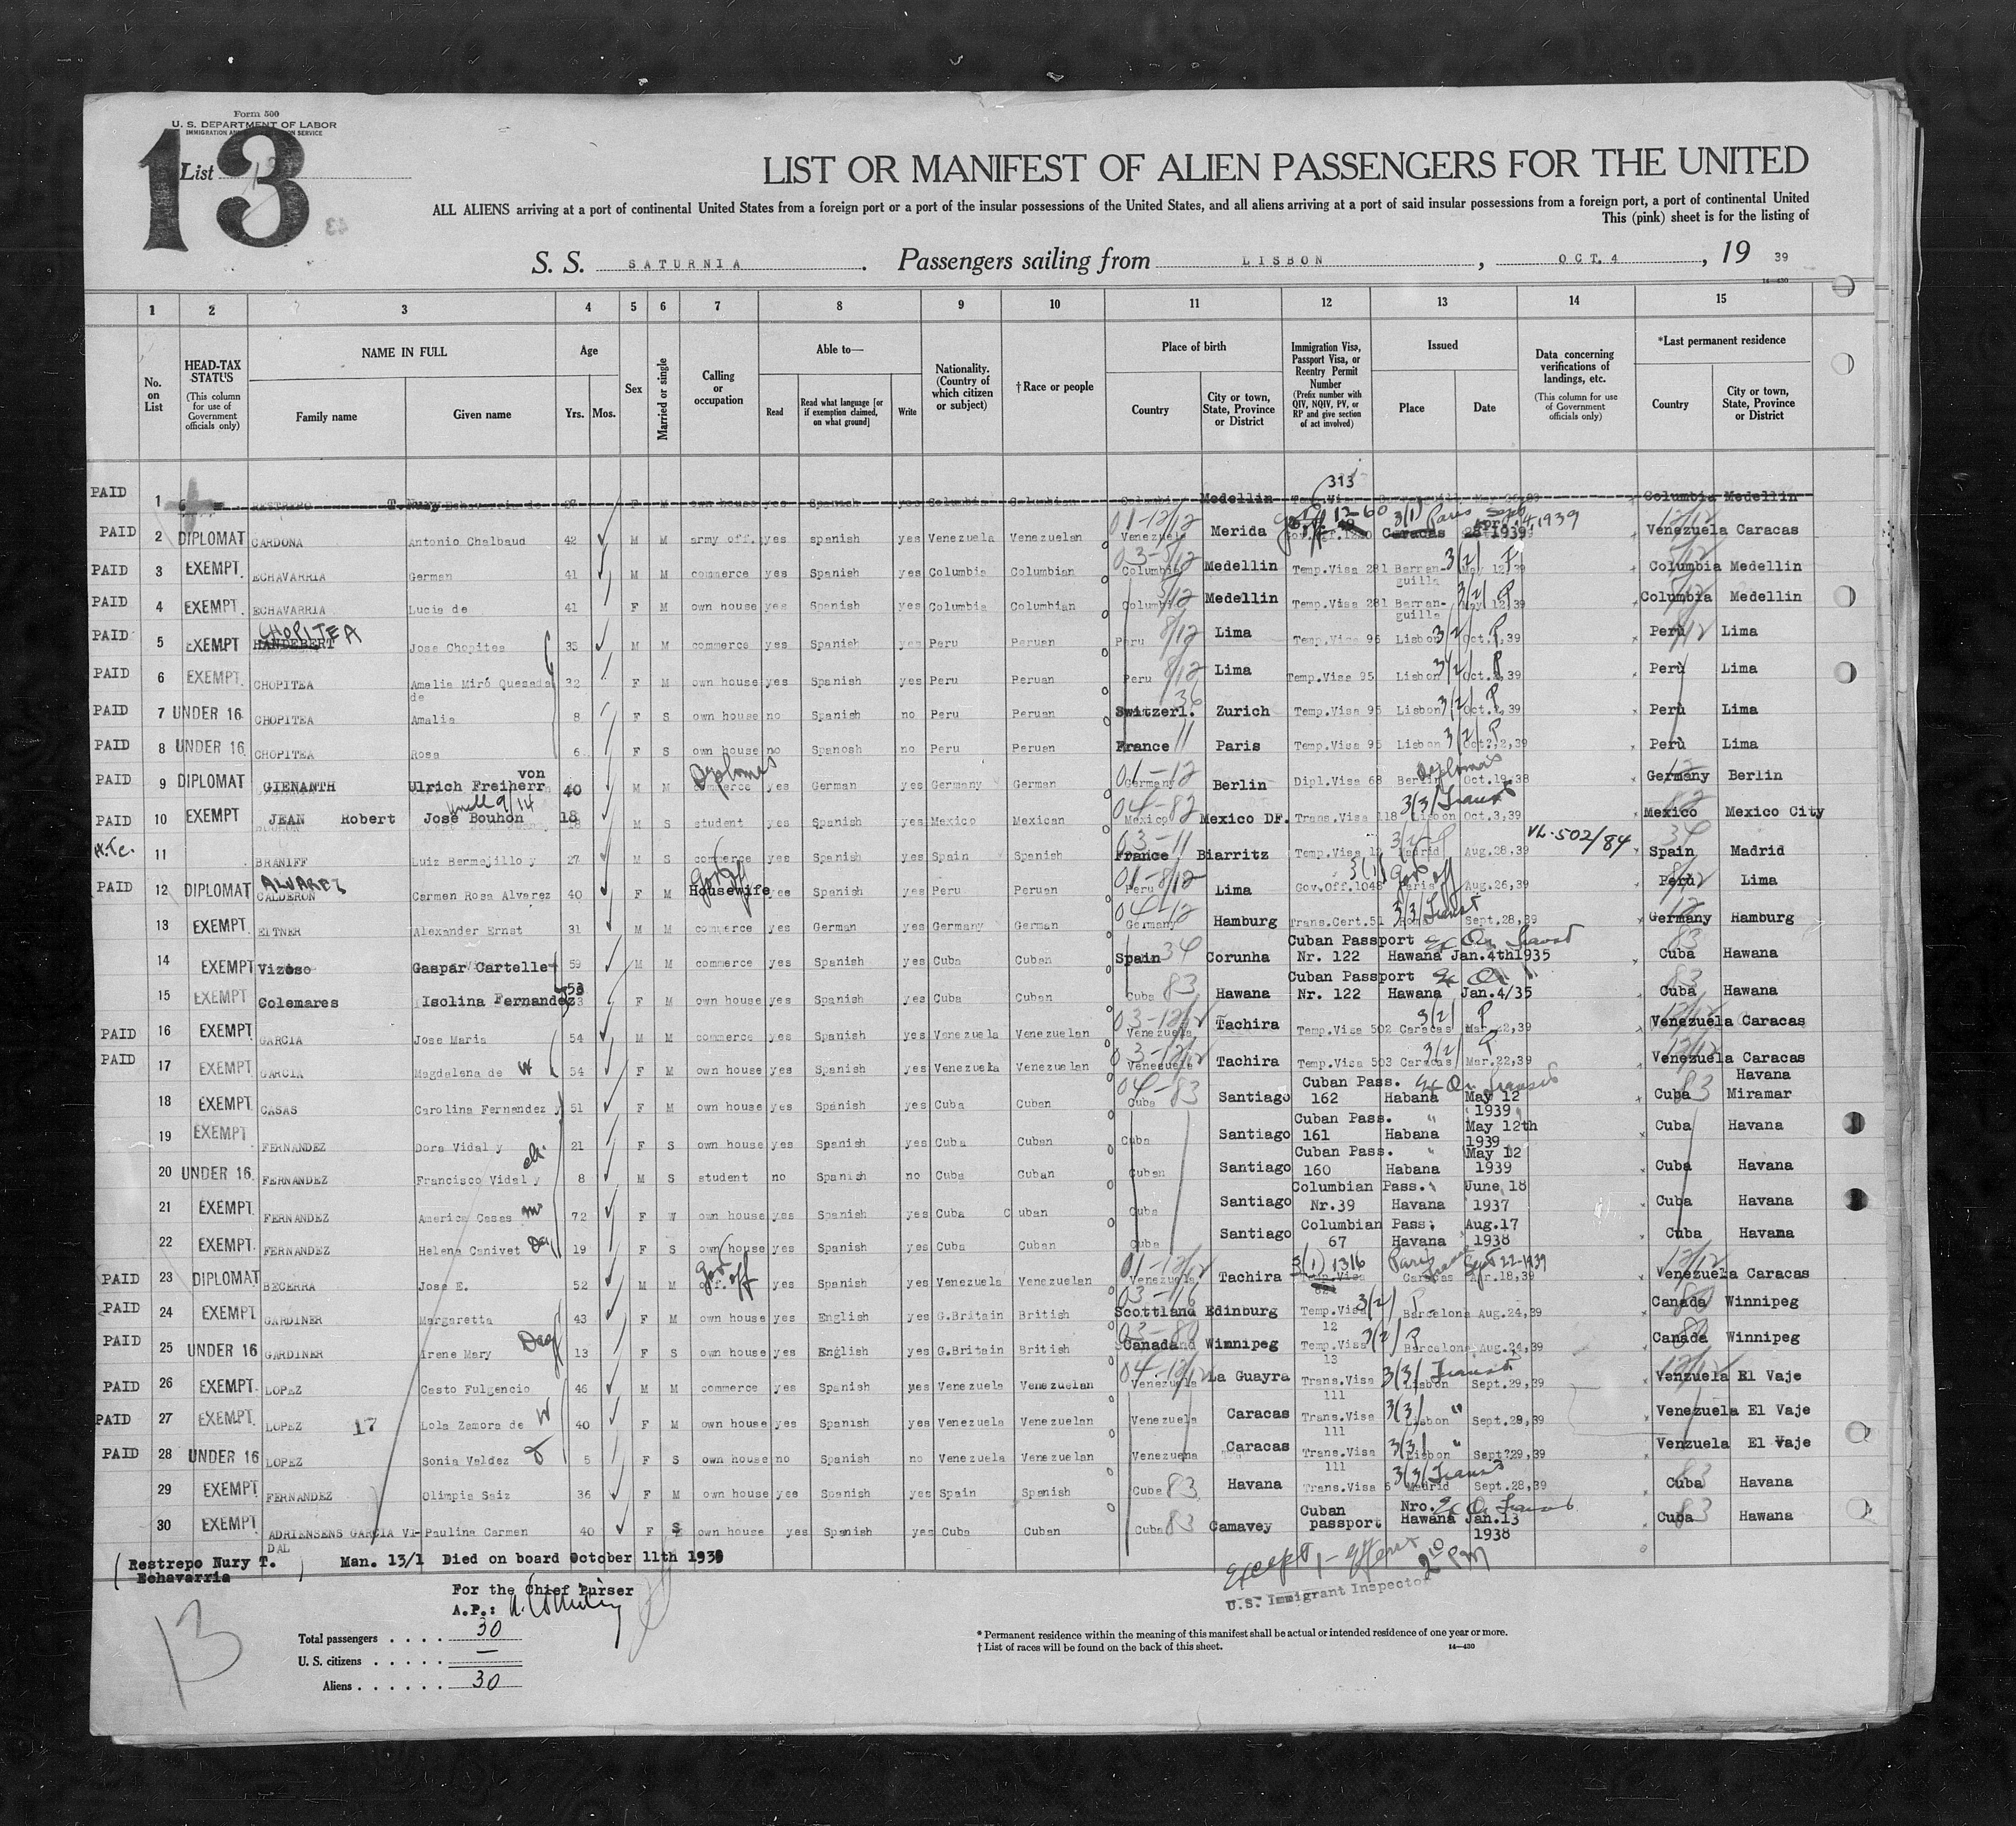 Form 500
U. S. DEPARTMENT OF LABOR
IMMIGRATION AND NATURALIZATION SERVICE
13
List 13
LIST OR MANIFEST OF ALIEN PASSENGERS FOR THE UNITED
ALL ALIENS arriving at a port of continental United States from a foreign port or a port of the insular possessions of the United States, and all aliens arriving at a port of said insular possessions from a foreign port, a port of continental United
This (pink) sheet is for the listing of
S. S. SATURNIA. Passengers sailing from LISBON, OCT. 4, 19 39
14—430
1 2 3 4 5 6 7 8 9 10 11 12 13 14 15
No. on List
HEAD-TAX STATUS (This column for use of Government officials only)
NAME IN FULL
Family name Given name
Age Yrs. Mos.
Sex
Married or single
Calling or occupation
Able to—
Read Read what language [or if exemption claimed, on what ground] Write
Nationality. (Country of which citizen or subject)
†Race or people
Place of birth
Country City or town, State, Province or District
Immigration Visa, Passport Visa, or Reentry Permit Number (Prefix number with QIV, NQIV, PV, or RP and give section of act involved)
Issued
Place Date
Data concerning verifications of landings, etc. (This column for use of Government officials only)
*Last permanent residence
Country City or town, State, Province or District
313
PAID 1 RESTREPO T. Nury Echavarria de F M own house yes Spanish yes Columbia Columbian Columbia Medellin Temp. Visa Columbia Medellin
PAID 2 DIPLOMAT CARDONA Antonio Chalbaud 42 M M army off. yes spanish yes Venezuela Venezuelan 01-12/12 Venezuela Merida 12-60 3(1) Paris Sept. 14, 1939 Caracas 1939 12/12 Venezuela Caracas
PAID 3 EXEMPT ECHAVARRIA German 41 M M commerce yes Spanish yes Columbia Columbian Columbia Medellin Temp.Visa 281 Barranguilla 3(2) May 12,39 Columbia Medellin
PAID 4 EXEMPT ECHAVARRIA Lucia de 41 F M own house yes Spanish yes Columbia Columbian Columbia Medellin Temp.Visa 281 Barranguilla 3(2) P May 12,39 Columbia Medellin
PAID 5 EXEMPT CHOPITEA HANDEBERT Jose Chopitea 35 M M commerce yes Spanish yes Peru Peruan Peru 8/12 Lima Temp.Visa 96 Lisbon 3(2) P Oct.2,39 Perù Lima
PAID 6 EXEMPT CHOPITEA Amalia Miró Quesada de 32 F M own house yes Spanish yes Peru Peruan Peru 8/12 Lima Temp.Visa 95 Lisbon 3(2) P Oct.2,39 Perù Lima
PAID 7 UNDER 16 CHOPITEA Amalia 8 F S own house no Spanish no Peru Peruan Switzerl. Zurich Temp.Visa 95 Lisbon 3(2) P Oct.2,39 Perù Lima
PAID 8 UNDER 16 CHOPITEA Rosa 6 F S own house no Spanosh no Peru Peruan France 11 Paris Temp.Visa 95 Lisbon 3(2) P Oct.2,39 Perù Lima
PAID 9 DIPLOMAT GIENANTH Ulrich Freiherr von 40 M M Diplomat commerce yes German yes Germany German 01-12 Germany Berlin Dipl.Visa 68 Berlin Diplomat Oct.19,38 12 Germany Berlin
PAID 10 EXEMPT JEAN Robert José Bouhon 18 M S student yes Spanish yes Mexico Mexican 04-82 Mexico Mexico DF. Trans.Visa 118 Lisbon 3(3) Transit Oct.3,39 82 Mexico Mexico City
11 BRANIFF Luiz Bermejillo y 27 M S commerce yes Spanish yes Spain Spanish 03-11 France Biarritz Temp.Visa Madrid Aug.28,39 VL-502/84 34 Spain Madrid
PAID 12 DIPLOMAT ALVAREZ CALDERON Carmen Rosa Alvarez 40 F M Gov off Housewife yes Spanish yes Peru Peruan 01-8/12 Peru Lima Gov.Off.1048 3(1) Gov off Paris Aug.26,39 8/12 Perù Lima
13 EXEMPT EITNER Alexander Ernst 31 M M commerce yes German yes Germany German 04-12 Germany Hamburg Trans.Cert.51 3(3) Transit Sept.28,39 12 Germany Hamburg
14 EXEMPT Vizoso Gaspar Cartelle 59 M M commerce yes Spanish yes Cuba Cuban Spain 34 Corunha Cuban Passport Nr. 122 Hawana Jan.4th1935 83 Cuba Hawana
15 EXEMPT Colemares Isolina Fernandez 53 F M own house yes Spanish yes Cuba Cuban Cuba 83 Hawana Cuban Passport Nr. 122 Hawana Jan.4/35 83 Cuba Hawana
PAID 16 EXEMPT GARCIA Jose Maria 54 M M commerce yes Spanish yes Venezuela Venezuelan 03-12/12 Venezuela Tachira Temp.Visa 502 Caracas 3(2) P Mar.22,39 12/12 Venezuela Caracas
PAID 17 EXEMPT GARCIA Magdalena de W 54 F M own house yes Spanish yes Venezuela Venezuelan 03-12/12 Venezuela Tachira Temp.Visa 503 Caracas 3(2) P Mar.22,39 12/12 Venezuela Caracas
18 EXEMPT CASAS Carolina Fernandez y 51 F M own house yes Spanish yes Cuba Cuban 04-83 Cuba Santiago Cuban Pass. 162 Habana May 12 1939 83 Cuba Havana Miramar
19 EXEMPT FERNANDEZ Dora Vidal y 21 F S own house yes Spanish yes Cuba Cuban Cuba Santiago Cuban Pass. 161 Habana May 12th 1939 Cuba Havana
20 UNDER 16 FERNANDEZ Francisco Vidal y 8 M S student no Spanish no Cuba Cuban Cuban Santiago Cuban Pass. 160 Habana May 12 1939 Cuba Havana
21 EXEMPT FERNANDEZ America Casas 72 F W own house yes Spanish yes Cuba Cuban Cuba Santiago Columbian Pass. Nr.39 Havana June 18 1937 Cuba Havana
22 EXEMPT FERNANDEZ Helena Canivet Da 19 F S own house yes Spanish yes Cuba Cuban Cuba Santiago Columbian Pass. 67 Havana Aug.17 1938 Cuba Havama
PAID 23 DIPLOMAT BECERRA Jose E. 52 M M Gov off off. yes Spanish yes Venezuela Venezuelan 01-12/12 Venezuela Tachira 3(1) 1316 Temp.Visa Paris Sept 22-1939 Caracas Apr.18,39 12/12 Venezuela Caracas
PAID 24 EXEMPT GARDINER Margaretta 43 F M own house yes English yes G.Britain British 03-16 Scottland Edinburg Temp.Visa 12 3(2) P Barcelona Aug.24,39 Canada Winnipeg
PAID 25 UNDER 16 GARDINER Irene Mary Dag 13 F S own house yes English yes G.Britain British Canada Winnipeg Temp.Visa 13 3(2) P Barcelona Aug.24,39 Canada Winnipeg
PAID 26 EXEMPT LOPEZ Casto Fulgencio 46 M M commerce yes Spanish yes Venezuela Venezuelan 04-12/12 Venezuela La Guayra Trans.Visa 111 3(3) Transit Lisbon Sept.29,39 12/12 Venzuela El Vaje
PAID 27 EXEMPT LOPEZ 17 Lola Zamora de W 40 F M own house yes Spanish yes Venezuela Venezuelan Venezuela Caracas Trans.Visa 111 3(3) " Lisbon Sept.29,39 Venezuela El Vaje
PAID 28 UNDER 16 LOPEZ Sonia Valdez D 5 F S own house no Spanish no Venezuela Venezuelan Venezuena Caracas Trans.Visa 111 3(3) " Lisbon Sept.29,39 Venzuela El Vaje
29 EXEMPT FERNANDEZ Olimpia Saiz 36 F M own house yes Spanish yes Spain Spanish Cuba 83 Havana Trans.Visa 6 3(3) Transit Madrid Sept.28,39 83 Cuba Havana
30 EXEMPT ADRIENSENS GARCIA VIDAL Paulina Carmen 40 F S own house yes Spanish yes Cuba Cuban Cuba 83 Camavey Cuban passport Nro. Hawana Jan.13 1938 83 Cuba Hawana
(Restrepo Nury T. Echavarria) Man. 13/1 Died on board October 11th 1939
For the Chief Purser
A.P.:
U.S. Immigrant Inspector
13
Total passengers . . . . 30
U. S. citizens . . . . . —
Aliens . . . . . . 30
* Permanent residence within the meaning of this manifest shall be actual or intended residence of one year or more.
† List of races will be found on the back of this sheet.
14—430